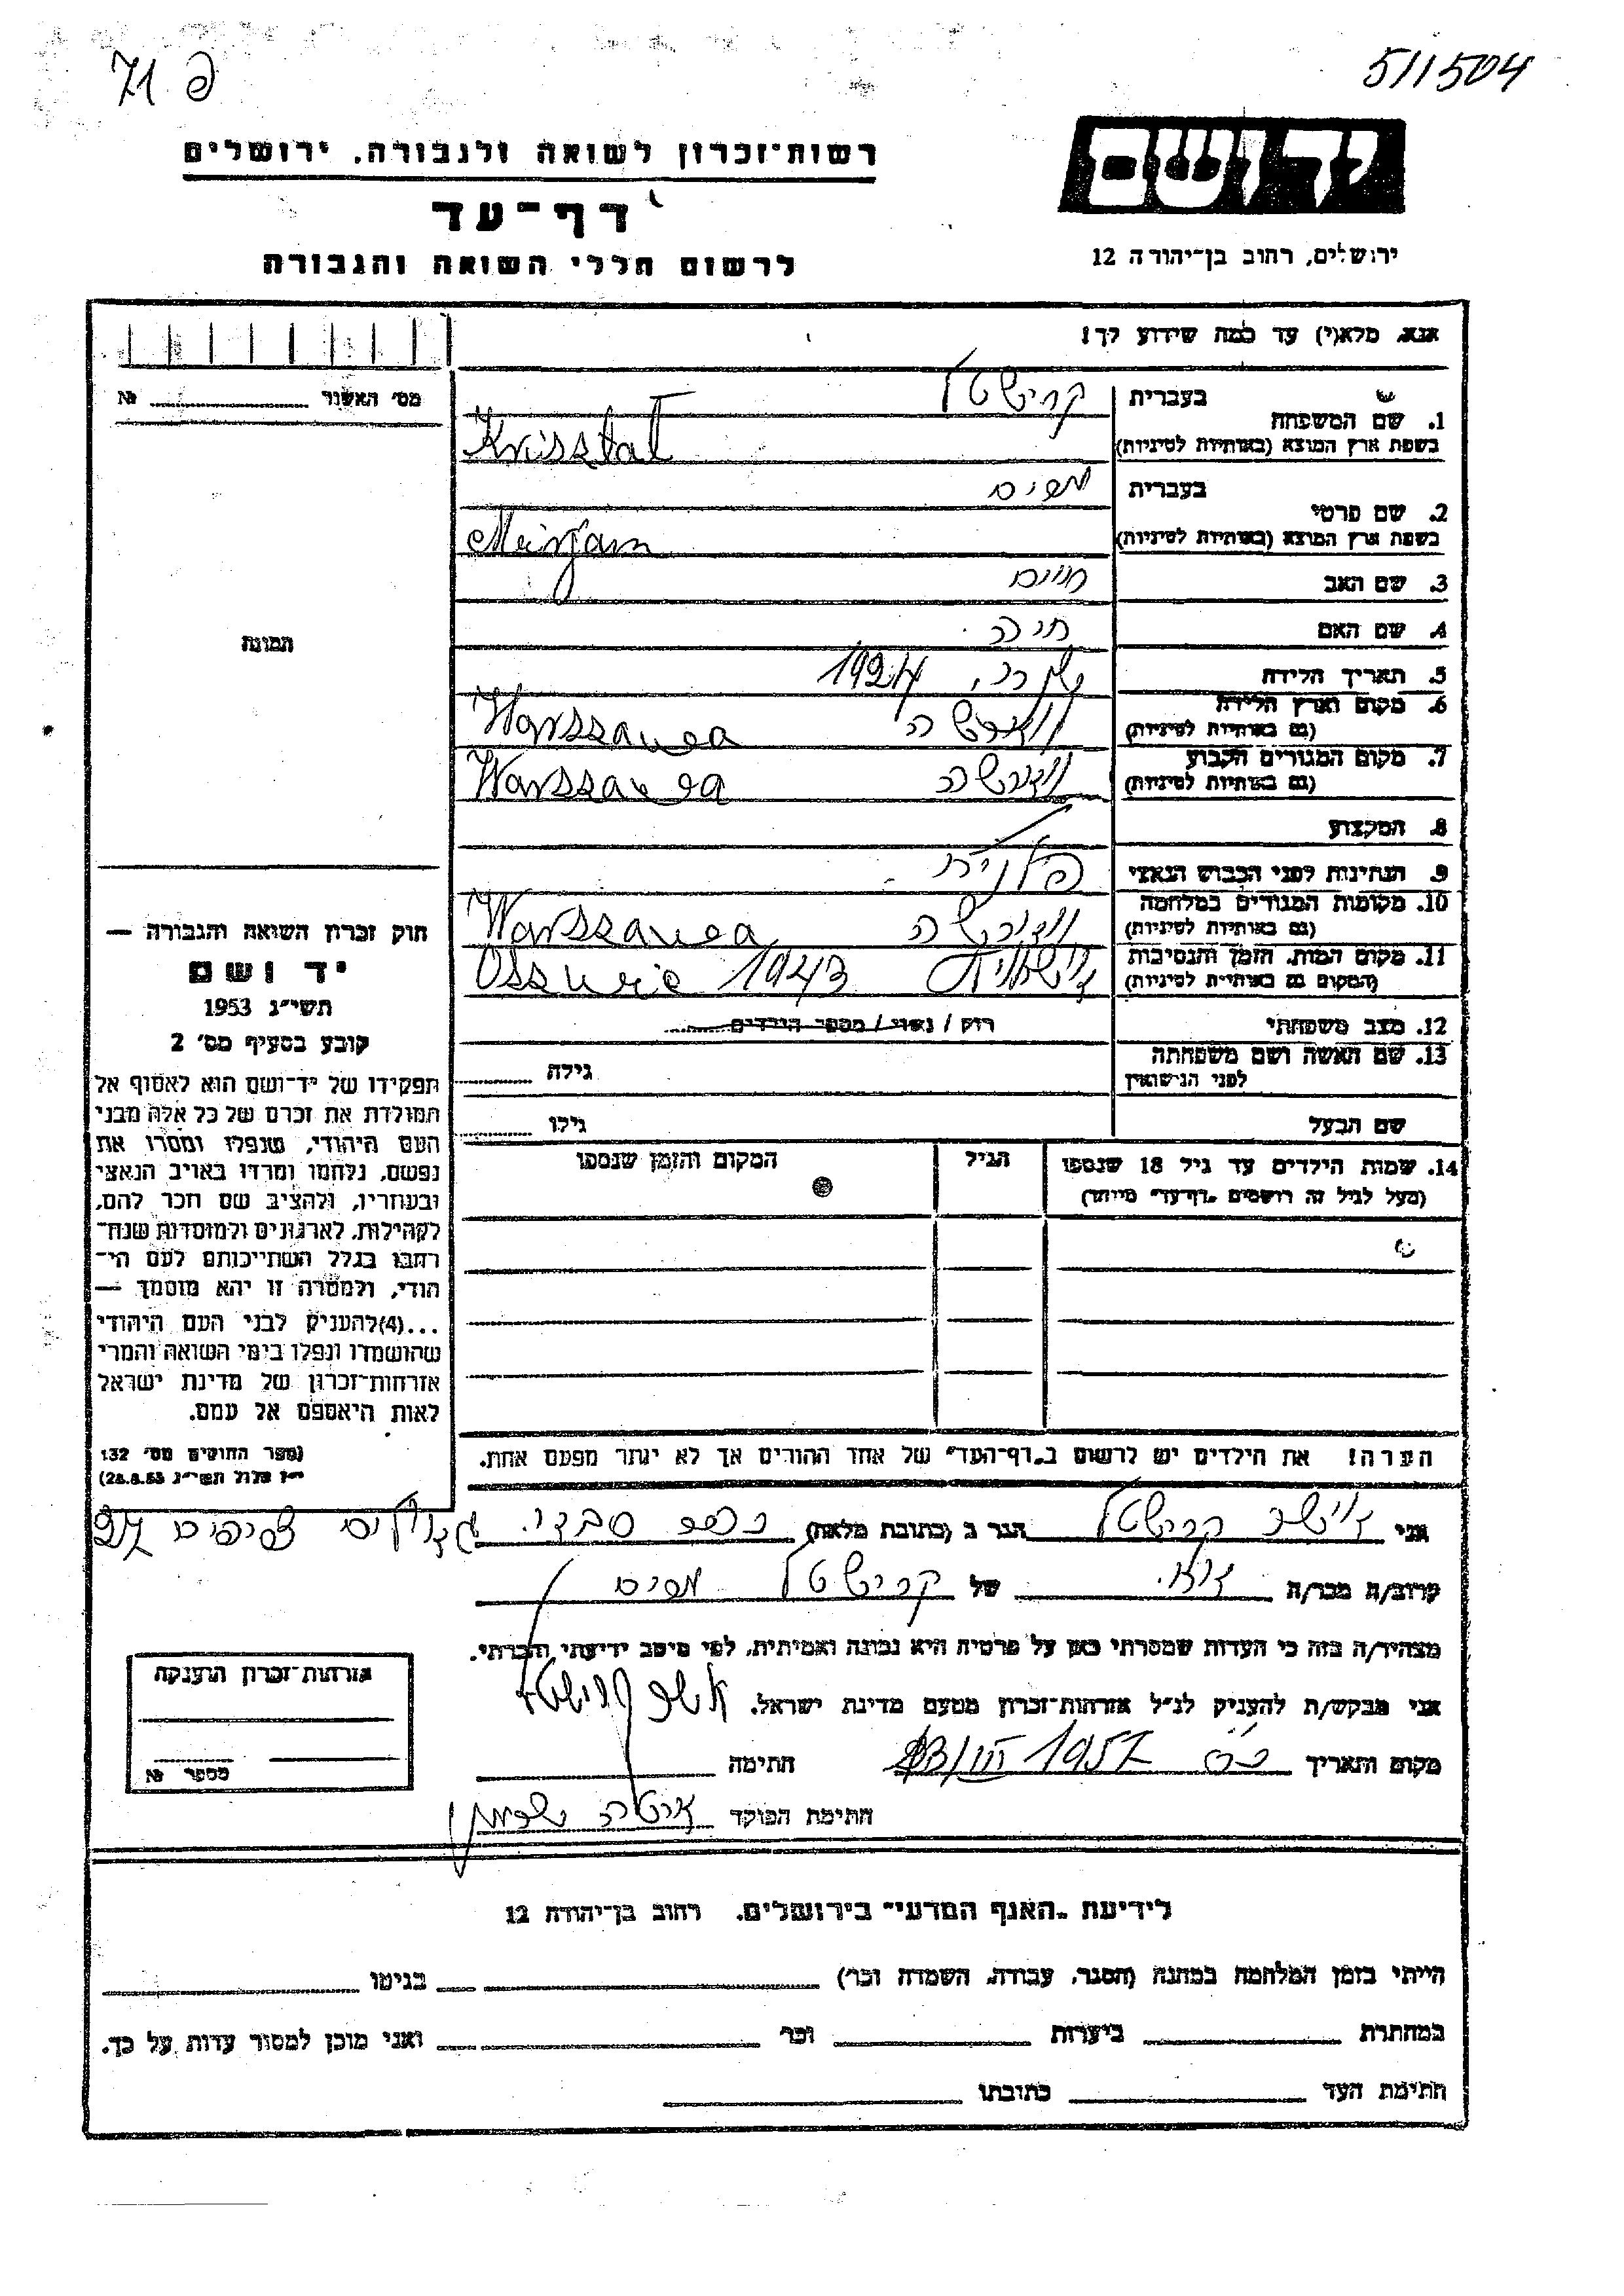 פ 71
5/1504
רשות־זכרון לשואה ולגבורה, ירושלים
יד ושם
דף־עד
ירושלים, רחוב בן־יהודה 12
לרשום חללי השואה והגבורה
אנא, מלא(י) עד כמה שידוע לך!
מס׳ האשור № ........
1. שם המשפחה
בעברית
קרישטל
בשפת ארץ המוצא (באותיות לטיניות)
Krisstal
2. שם פרטי
בעברית
מרים
בשפת ארץ המוצא (באותיות לטיניות)
Mirjam
3. שם האב
חיים
4. שם האם
חיה
5. תאריך הלידה
1924
6. מקום וארץ הלידה
(גם באותיות לטיניות)
ווארשה Warssawa
7. מקום המגורים הקבוע
(גם באותיות לטיניות)
ווארשה Warssawa
8. המקצוע
9. הנתינות לפני הכבוש הנאצי
פולנית
10. מקומות המגורים במלחמה
(גם באותיות לטיניות)
ווארשה Warssawa
11. מקום המות, הזמן והנסיבות
(המקום גם באותיות לטיניות)
1943
12. מצב משפחתי
רווק / נשוי / מספר הילדים........
13. שם האשה ושם משפחתה
לפני הנישואין
גילה ........
שם הבעל
גילו ........
14. שמות הילדים עד גיל 18 שנספו
(מעל לגיל זה רושמים „דף־עד״ מיוחד)
הגיל
המקום והזמן שנספו
הערה! את הילדים יש לרשום ב„דף־העד״ של אחד ההורים אך לא יותר מפעם אחת.
התמונה
חוק זכרון השואה והגבורה —
יד ושם
תשי״ג 1953
קובע בסעיף מס׳ 2
תפקידו של יד־ושם הוא לאסוף אל
המולדת את זכרם של כל אלה מבני
העם היהודי, שנפלו ומסרו את
נפשם, נלחמו ומרדו באויב הנאצי
ובעוזריו, ולהציב שם וזכר להם,
לקהילות, לארגונים ולמוסדות שנח־
רבו בגלל השתייכותם לעם הי־
הודי, ולמטרה זו יהא מוסמך —
...(4) להעניק לבני העם היהודי
שהושמדו ונפלו בימי השואה והמרי
אזרחות־זכרון של מדינת ישראל
לאות היאספם אל עמם.
(ספר החוקים מס׳ 132
י״ז אלול תשי״ג 28.8.53)
אני קרישטל הגר ב (כתובת מלאה) כפר סבא
קרוב/ה מכר/ה של קרישטל מרים
מצהיר/ה בזה כי העדות שמסרתי כאן על פרטיה היא נכונה ואמיתית, לפי מיטב ידיעתי והכרתי.
אני מבקש/ת להעניק לנ״ל אזרחות־זכרון מטעם מדינת ישראל.
מקום ותאריך כ״ס 23/III 1957 חתימה
חתימת הפוקד
אזרחות־זכרון הוענקה
מספר №
לידיעת „האגף המדעי״ בירושלים, רחוב בן־יהודה 12
הייתי בזמן המלחמה במחנה (הסגר, עבודה, השמדה וכו׳) בגיטו
במחתרת ביערות וכו׳ ואני מוכן למסור עדות על כך.
חתימת העד כתובתו